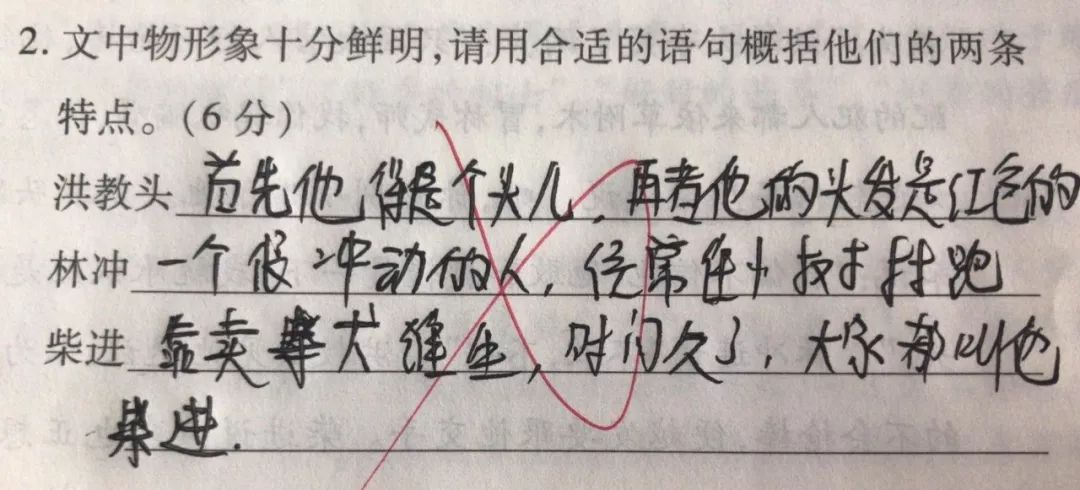 2. 文中物形象十分鲜明,请用合适的语句概括他们的两条
特点。(6分)
洪教头 首先他得是个头儿,再者他的头发是红色的
林冲 一个很冲动的人,经常在林
柴进 靠卖柴犬维生,时间久了,大家都叫他
柴进.